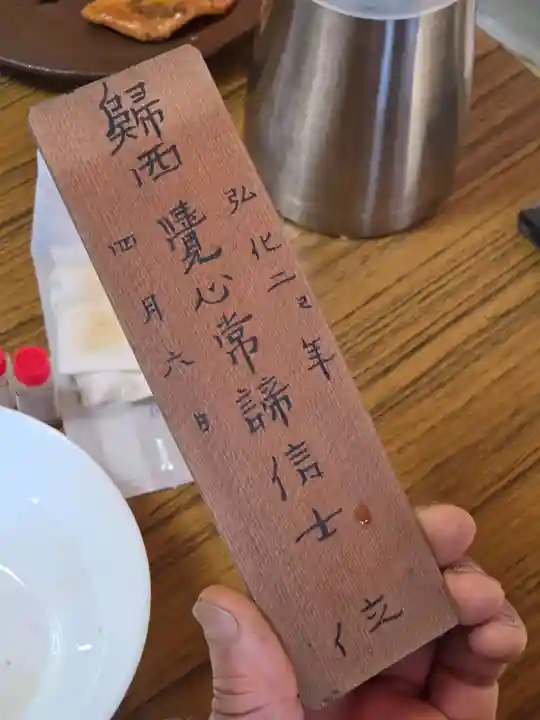 弘化二乙年
歸西 覺心常諦信士 位
四月六日